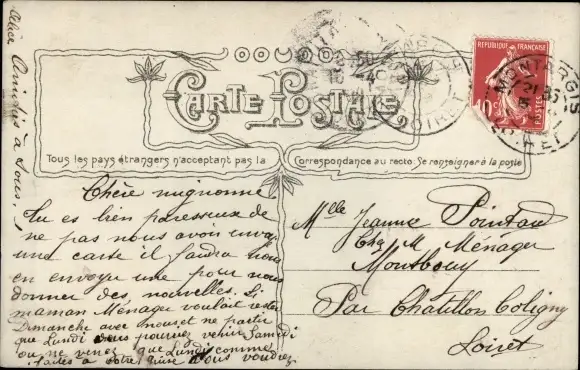 Alice Amitiés à tous.
CARTE POSTALE
Tous les pays étrangers n'acceptant pas la Correspondance au recto. Se renseigner à la poste
REPUBLIQUE FRANÇAISE
10c
POSTES
MONTARGIS
LOIRET
Chère mignonne
Tu es bien paresseuse de
ne pas nous avoir envoyé
une carte il faudra nous
en envoyer une pour nous
donner des nouvelles. Si
maman Ménager voulait rester
Dimanche avec nous et ne partir
que Lundi vous pourriez venir Samedi
ou ne venez que Lundi comme
faites à votre guise vous voudrez
Mlle Jeanne Pointard
Chez M Ménager
Montbouy
Par Châtillon Coligny
Loiret